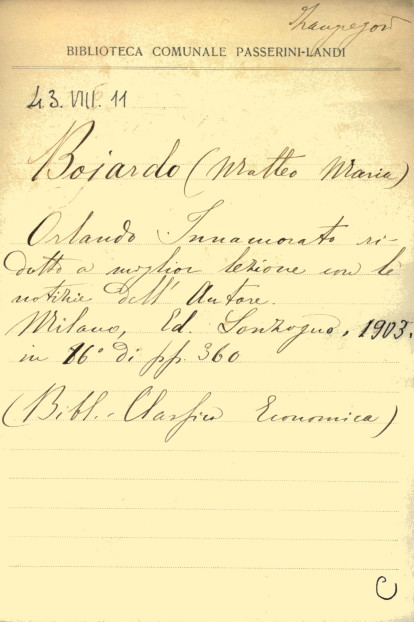 BIBLIOTECA COMUNALE PASSERINI-LANDI
43. VIII. 11
Bojardo (Matteo Maria)
Orlando Innamorato ri-
dotto a miglior lezione con le
notizie dell' Autore.
Milano, Ed. Sonzogno, 1903.
in 16° di pp. 360
(Bibl. Classica Economica)
C